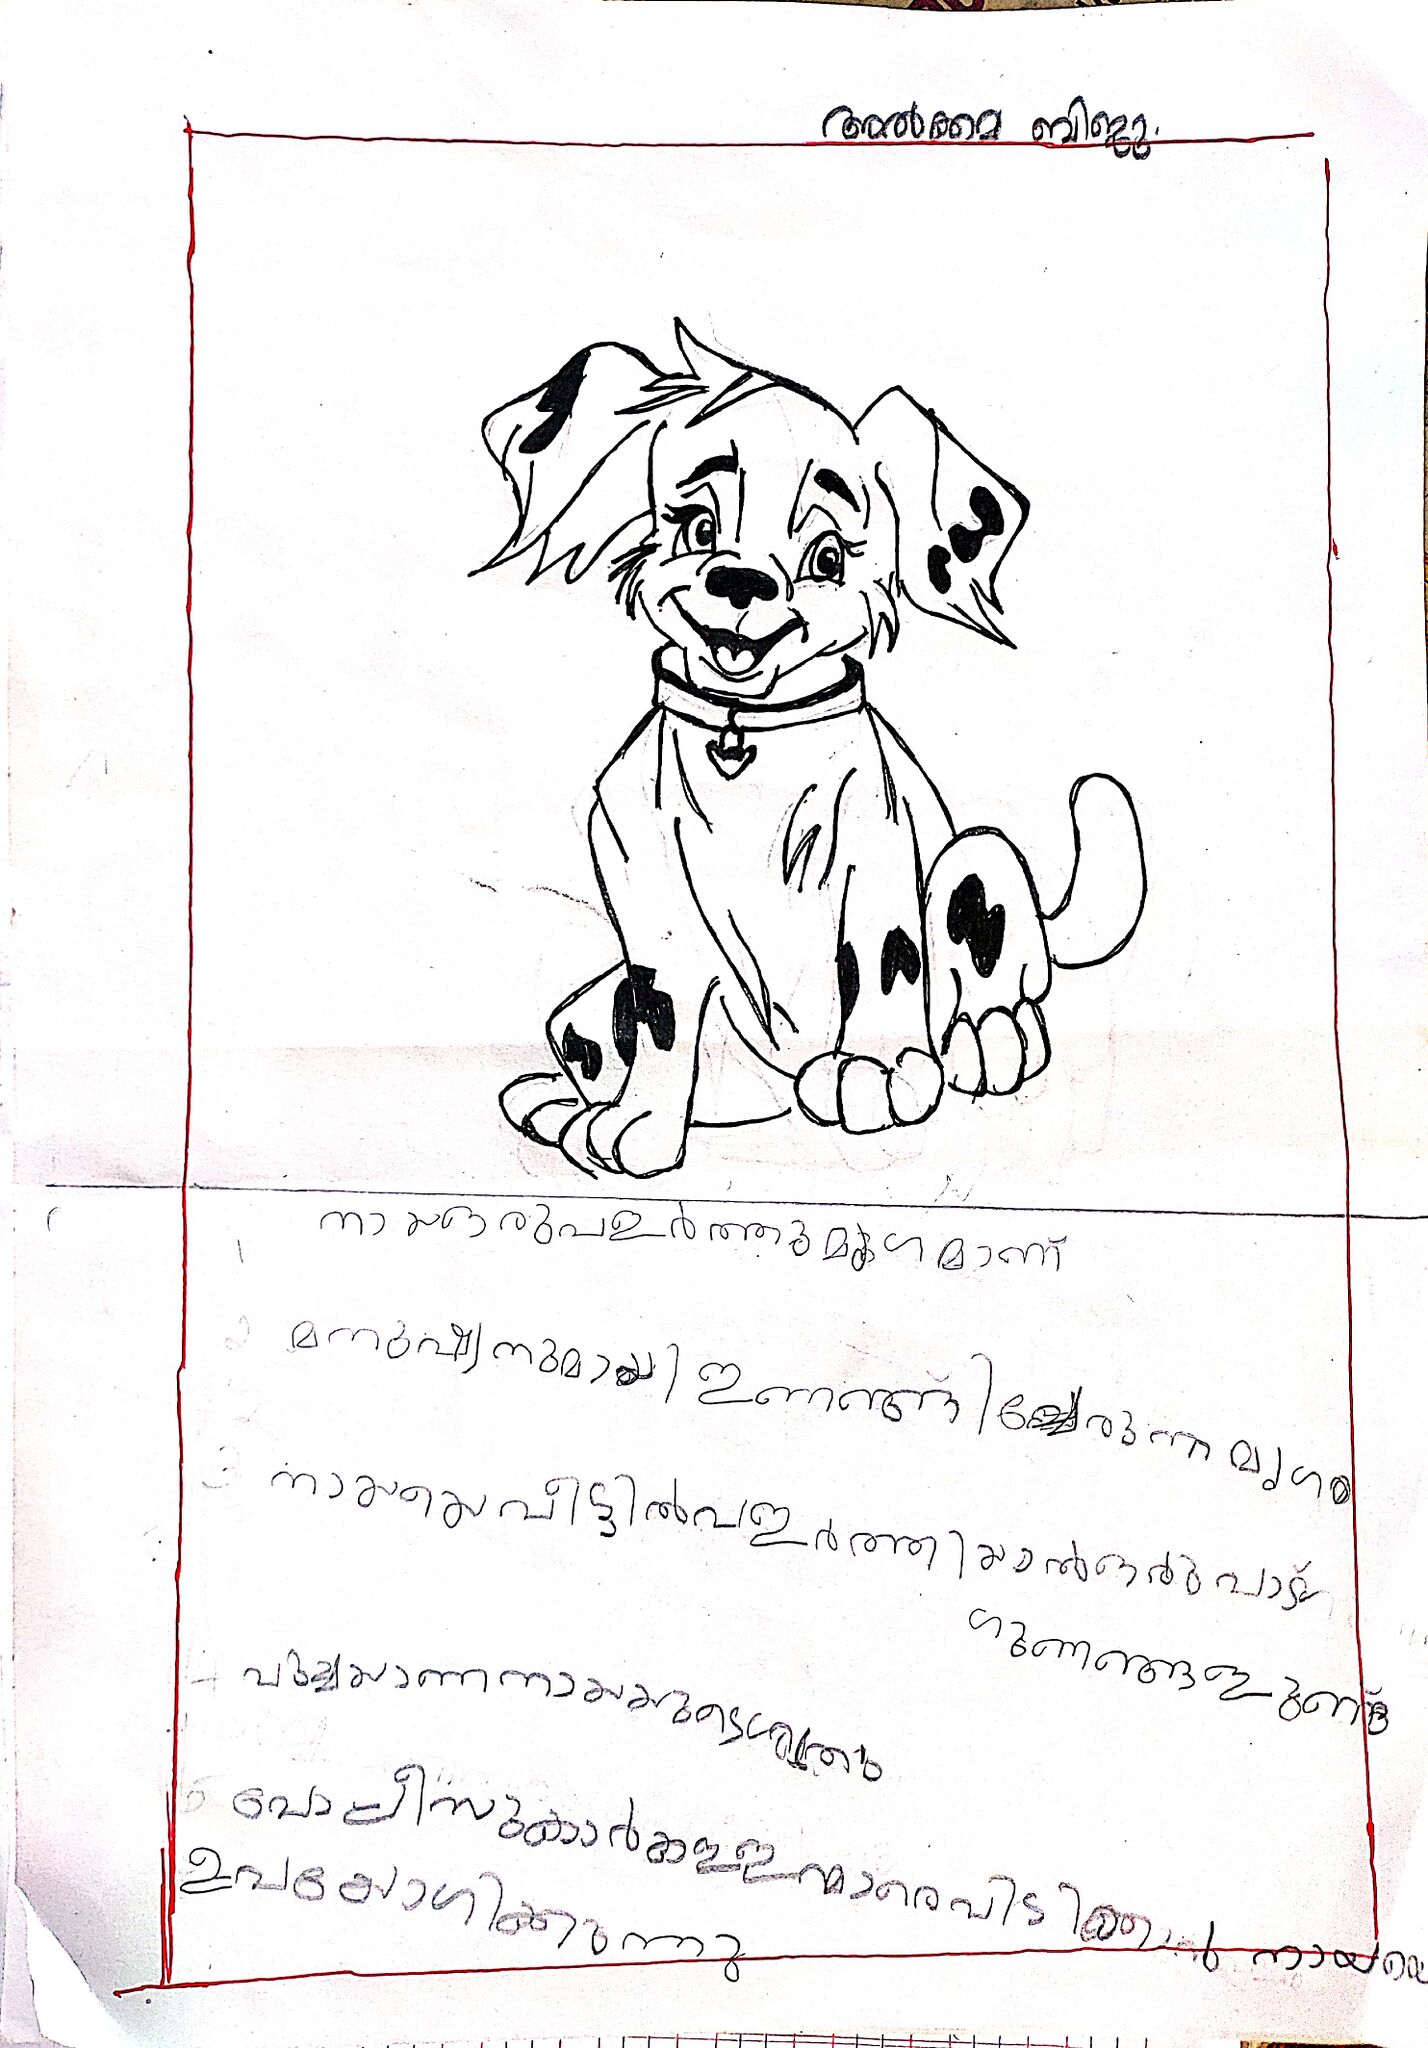 അൽക്ക ബിജു.
1 നായഒരുപളർത്തുമൃഗമാണ്
2 മനുഷ്യനുമായി ഇണങ്ങിച്ചേരുന്ന മൃഗം
3 നായയെവീട്ടിൽവളർത്തിയാൽഒരുപാട്
ഗുണങ്ങളുണ്ട്
നായയുടെ
പോലീസുകാർകള്ളന്മാരെപിടിക്കാൻ നായയെ
ഉപയോഗിക്കുന്നു